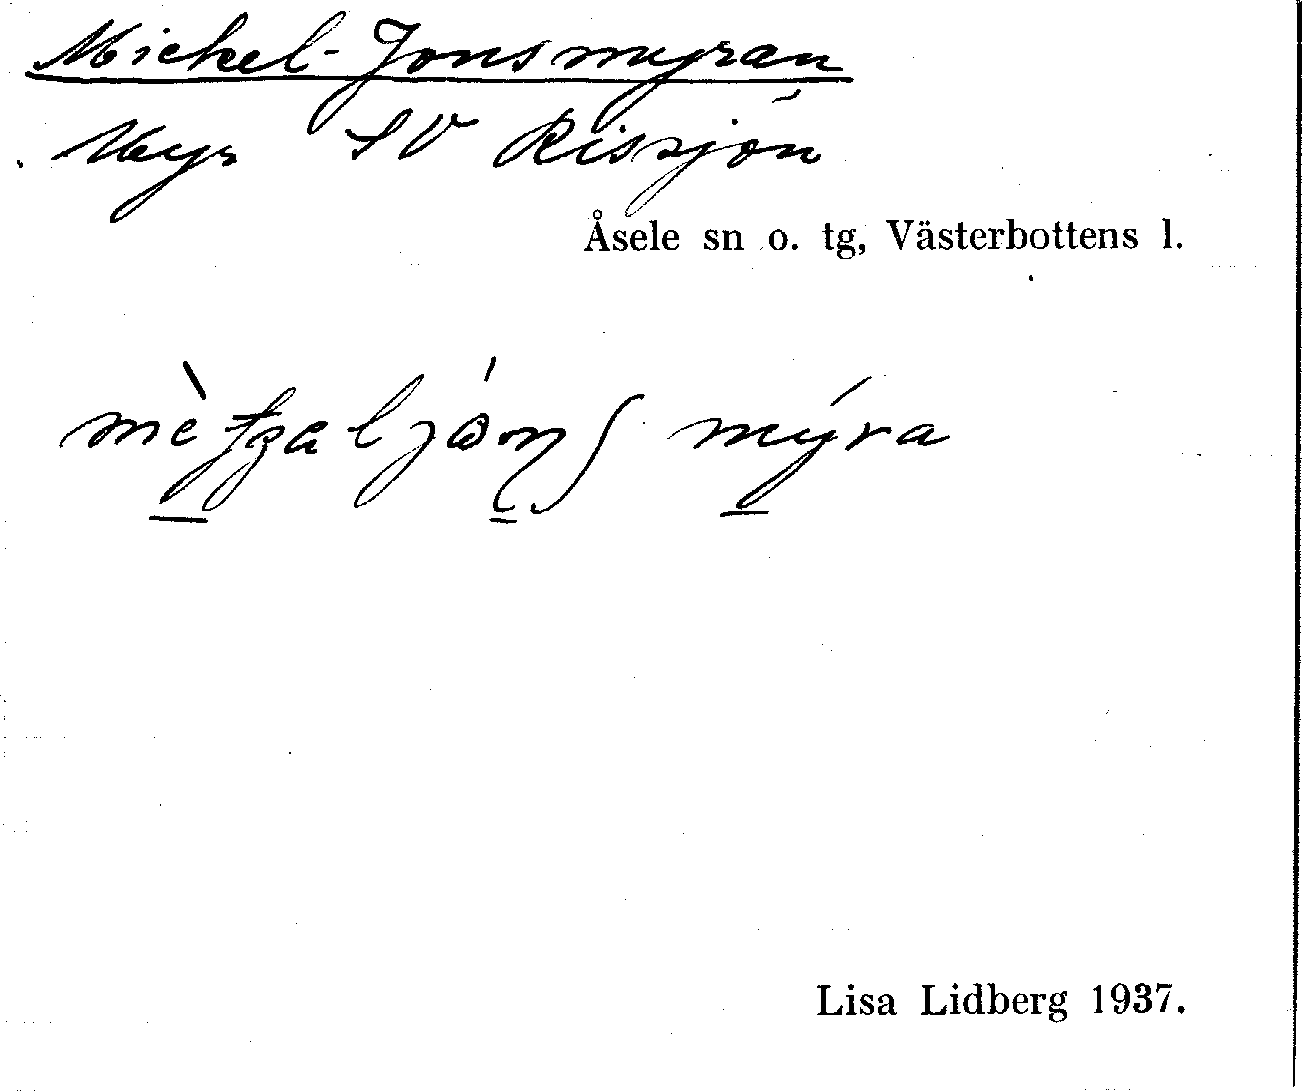 Mickel-Jonsmyran
Myr SV Rissjön
Åsele sn o. tg, Västerbottens l.
mýra
Lisa Lidberg 1937.